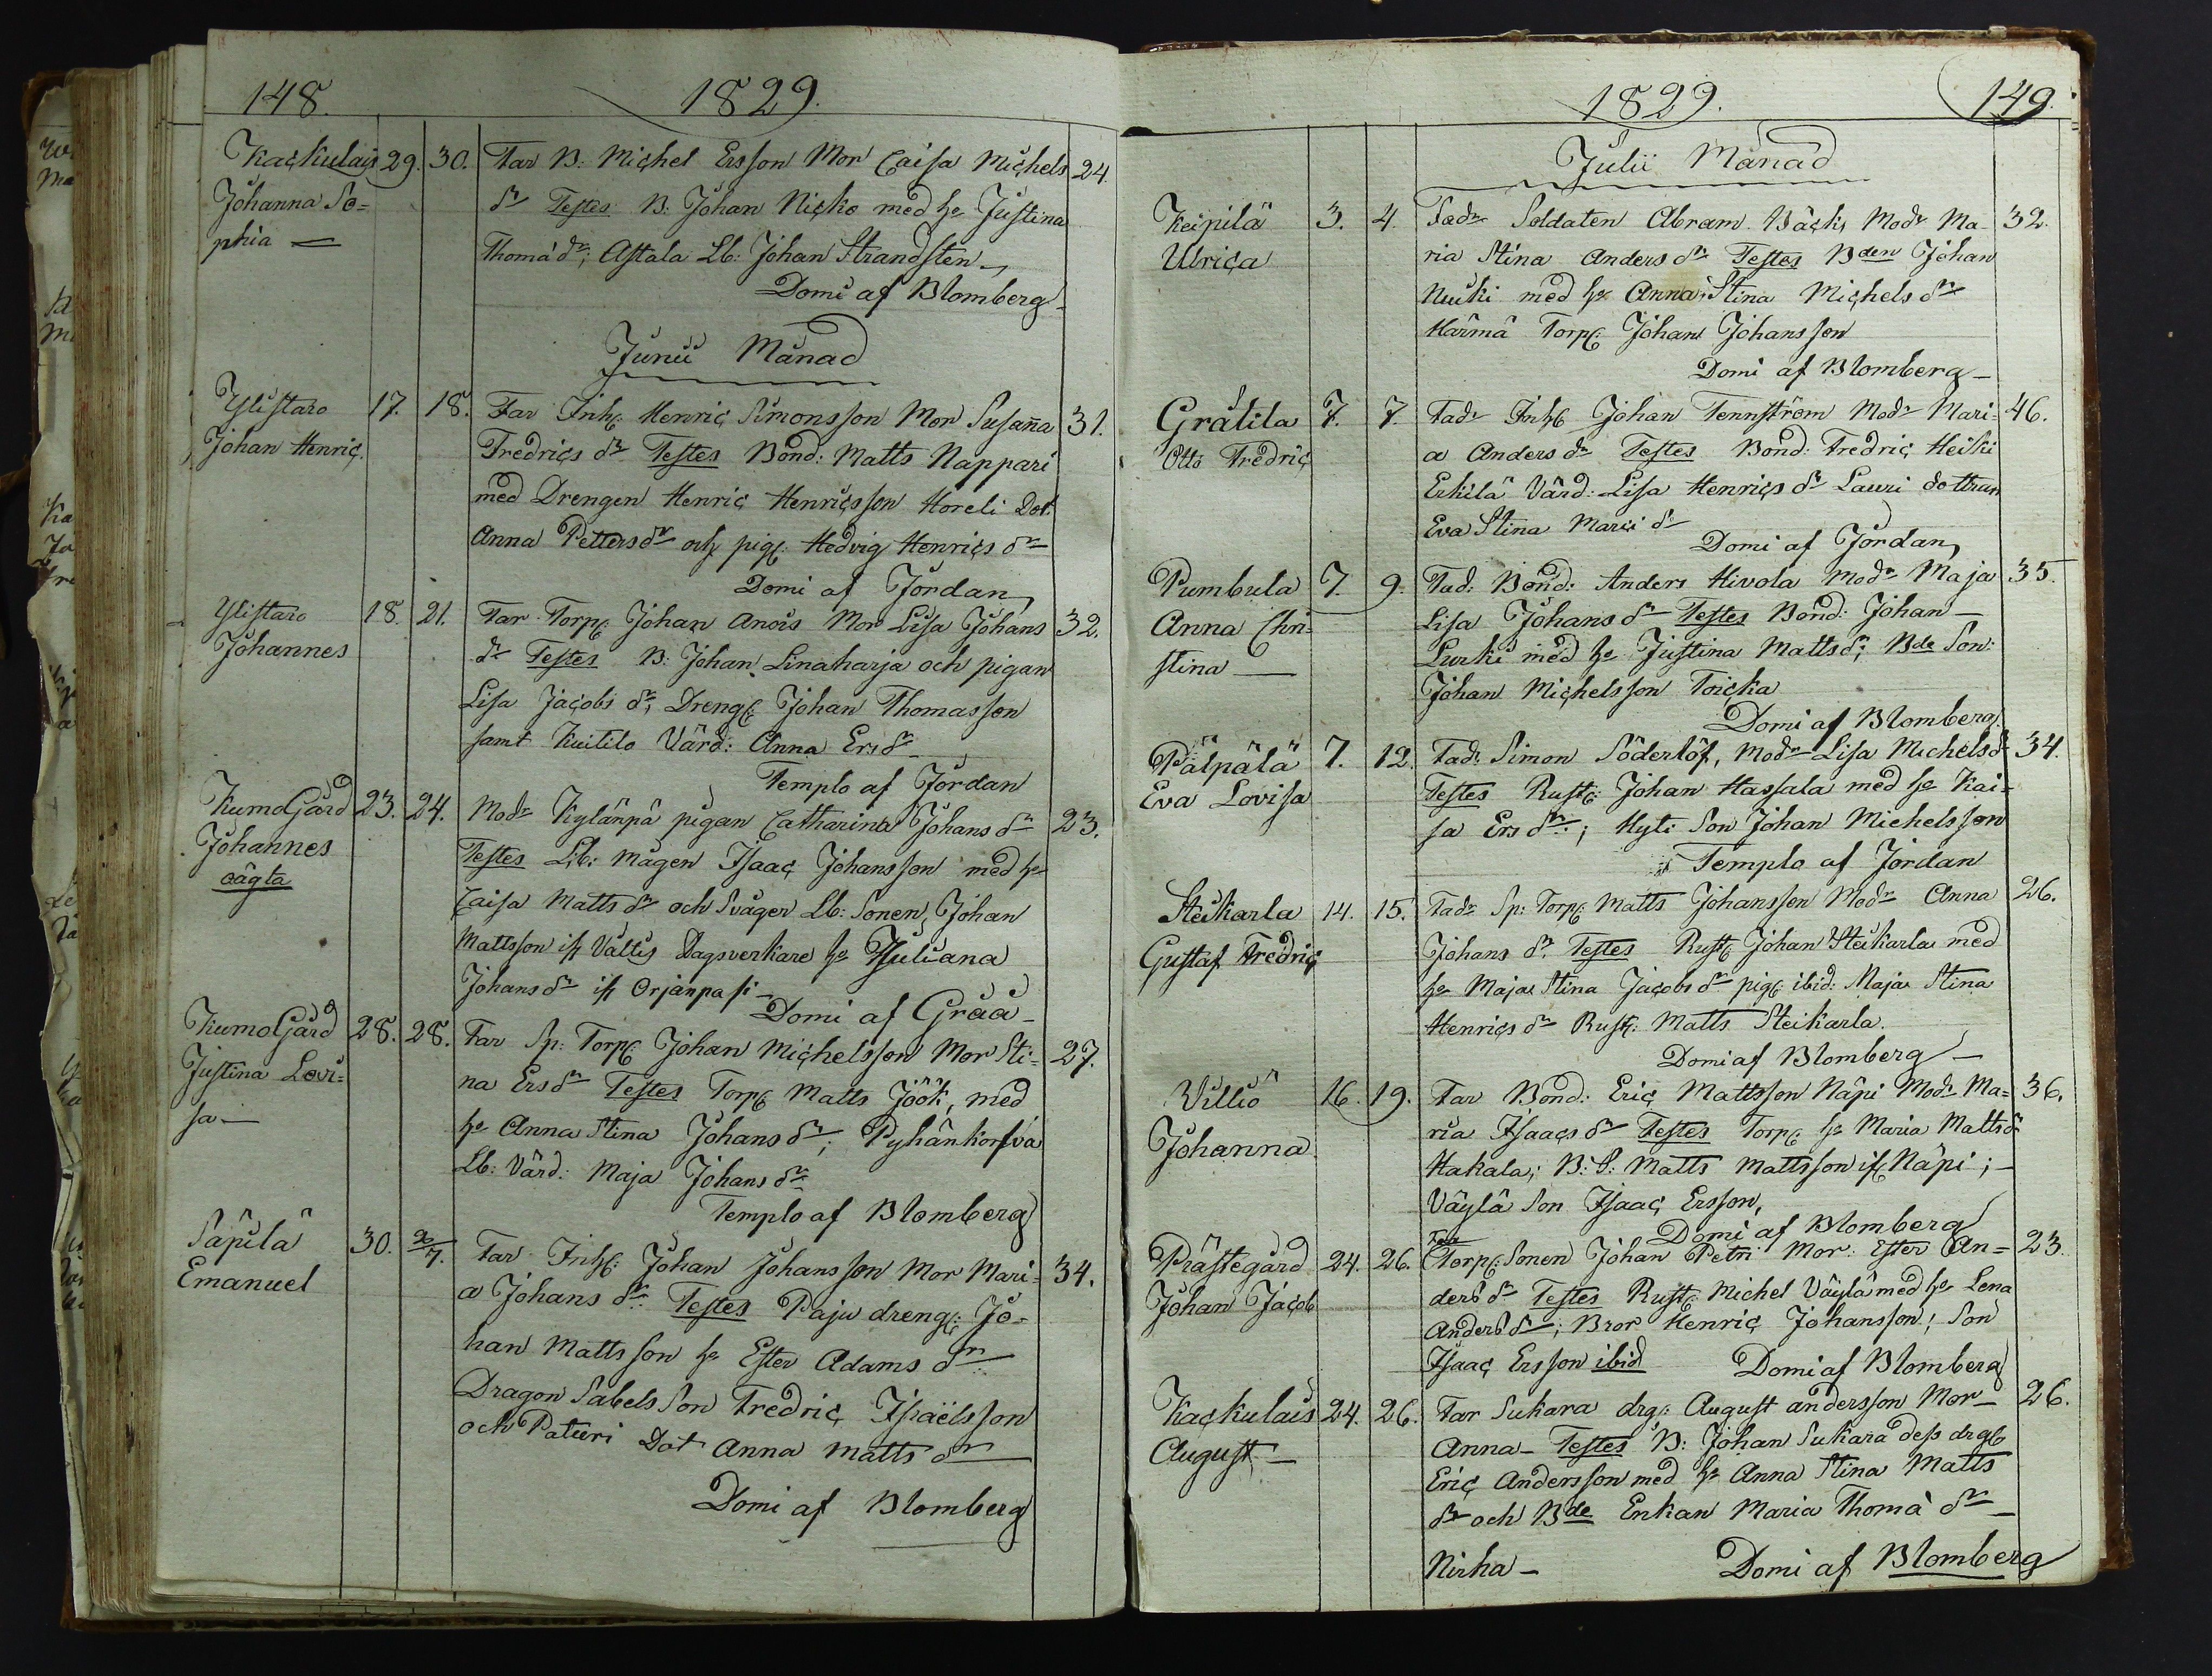 148.
1829.
Kackulais 29. 30. Far B: Michel Ersson Mor Caisa Michels 24.
Johanna So=
dr Testes B: Johan Nicko med hr Justina
phia —
Thomädr; Astala Lb: Johan Strandsten —
Domi af Blomberg
Junii Månad
Ylistaro 17. 18. Far Inh: Henric Simonsson Mor Susaña 31.
Johan Henric.
Fredrics dr Testes Bond: Matts Nappari
med Drengen Henric Henricsson Horeli Dot:
Anna Petters dr och pig: Hedvig Henrics dr
Domi af Jordan
Ylistaro 18. 21. Far Torp: Johan Anois Mor Lisa Johans 32.
Johannes
dr Testes B: Johan Linaharja och pigan
Lisa Jacobs dr; Dreng: Johan Thomasson
samt Kuitilo Värd: Anna Ers dr
Templo af Jordan
KumoGård 23. 24. Modr Kylänpä pigan Catharina Johans dr 23.
Johannes
Testes Lib: mågen Isaac Johansson med hr
oägta
Caisa Matts dr och Svåger Lb: Sonen Johan
Mattsson ifr Valtis Dagsverkare hr Juliana
Johans dr ifr Orjänpasi —
Domi af Grää —
KumoGård 28. 28. Far Sp: Torp: Johan Michelsson Mor Sti= 27.
Justina Lovi=
na Ers dr Testes Torp: Matts Jöök, med
sa —
hr Anna Stina Johans dr; Pyhänkorfva
Lb: Värd: Maja Johans dr
Templo af Blomberg
Säpilä 30. Far Inh: Johan Johansson Mor Mari= 34.
Emanuel
a Johans dr: Testes Paju dreng: Jo=
han Mattsson hr Ester Adams dr
Dragon Sabels Son Fredric Israëlsson
och Paturi Dot Anna Matts dr
Domi af Blomberg
1829.
149.
Julii Månad
Keipilä 3. 4. Fadr Soldaten Abram Bäck, Modr Ma- 32.
Ulrica
ria Stina Anders dr Testes Bden Johan
Nuuki med hr Anna Stina Michels dr
Harmä Torp: Johan Johansson
Domi af Blomberg —
Gråtila 7. 7. Fadr Inh: Johan Tennström Modr Mari= 46.
Otto Fredric
a Anders dr Testes Bond: Fredric Heiki
Erkilä Värd: Lisa Henrics dr Lauri dottran
Eva Stina Marci dr
Domi af Jordan
Pumbula 7. 9. Fad: Bond: Anders Hivola Modr Maja 35.
Anna Chri=
Lisa Johans dr Testes Bond: Johan —
stina —
Lurki med hr Justina Matts dr; Bde Son:
Johan Michelsson Toicka
Domi af Blomberg.
Pälpälä 7. 12. Fadr Simon Söderlöf, Modr Lisa Michels dr 34.
Eva Lovisa
Testes Rust: Johan Hassala med hr Kai=
sa Ers dr; Hyti Son Johan Michelsson
Templo af Jordan
Steikarla 14. 15. Fadr Sp: Torp: Matts Johansson Modr Anna 26.
Gustaf Fredric
Johans dr Testes Rust: Johan Steikarla med
hr Maja Stina Jacobs dr pig: ibid: Maja Stina
Henrics dr Rust: Matts Steikarla.
Domi af Blomberg —
Villiö 16. 19. Far Bond: Eric Mattsson Näpi Modr Ma= 36.
Johanna
ria Isaacs dr Testes Torp: hr Maria Matts dr
Hakala; B: S: Matts Mattsson ifr Näpi; —
Väylä Son Isaac Ersson,
Domi af Blomberg
Prästegård 24. 26. Torp: Sonen Johan Petri Mor: Ester An= 23.
Johan Jacob
ders dr Testes Rust: Michel Väylä med hr Lena
Anders dr; Bror Henric Johansson; Son
Isaac Ersson ibid Domi af Blomberg
Kackulais 24. 26. Far Sukara drg: August andersson Mor — 26.
August —
Anna — Testes B: Johan Sukara dess drg:
Eric Andersson med hr Anna Stina Matts
dr och Bde Enkan Maria Thomä dr —
Nirha — Domi af Blomberg